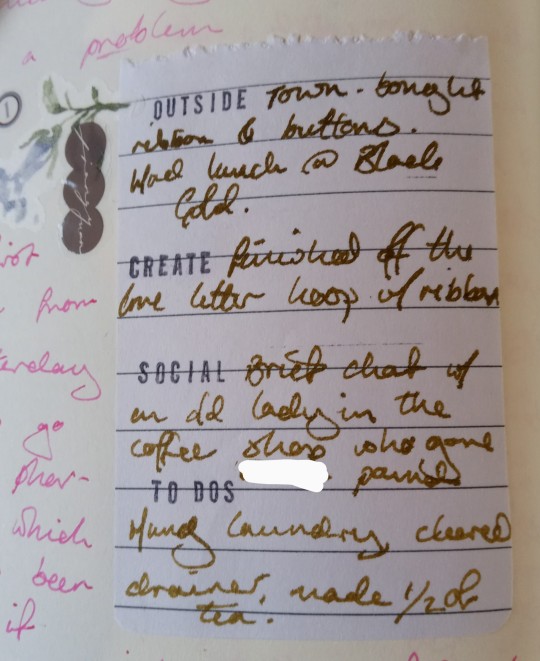 a problem
1
OUTSIDE Town - bought
ribbon & buttons.
Had lunch @ Black
Gold.
CREATE finished off the
love letter hoop w/ ribbon
from
SOCIAL Brief chat w/
an old lady in the
go
coffee shop who gave
TO DOS
which
Hung laundry, cleared
been
drainer, made 1/2 of
if
tea.